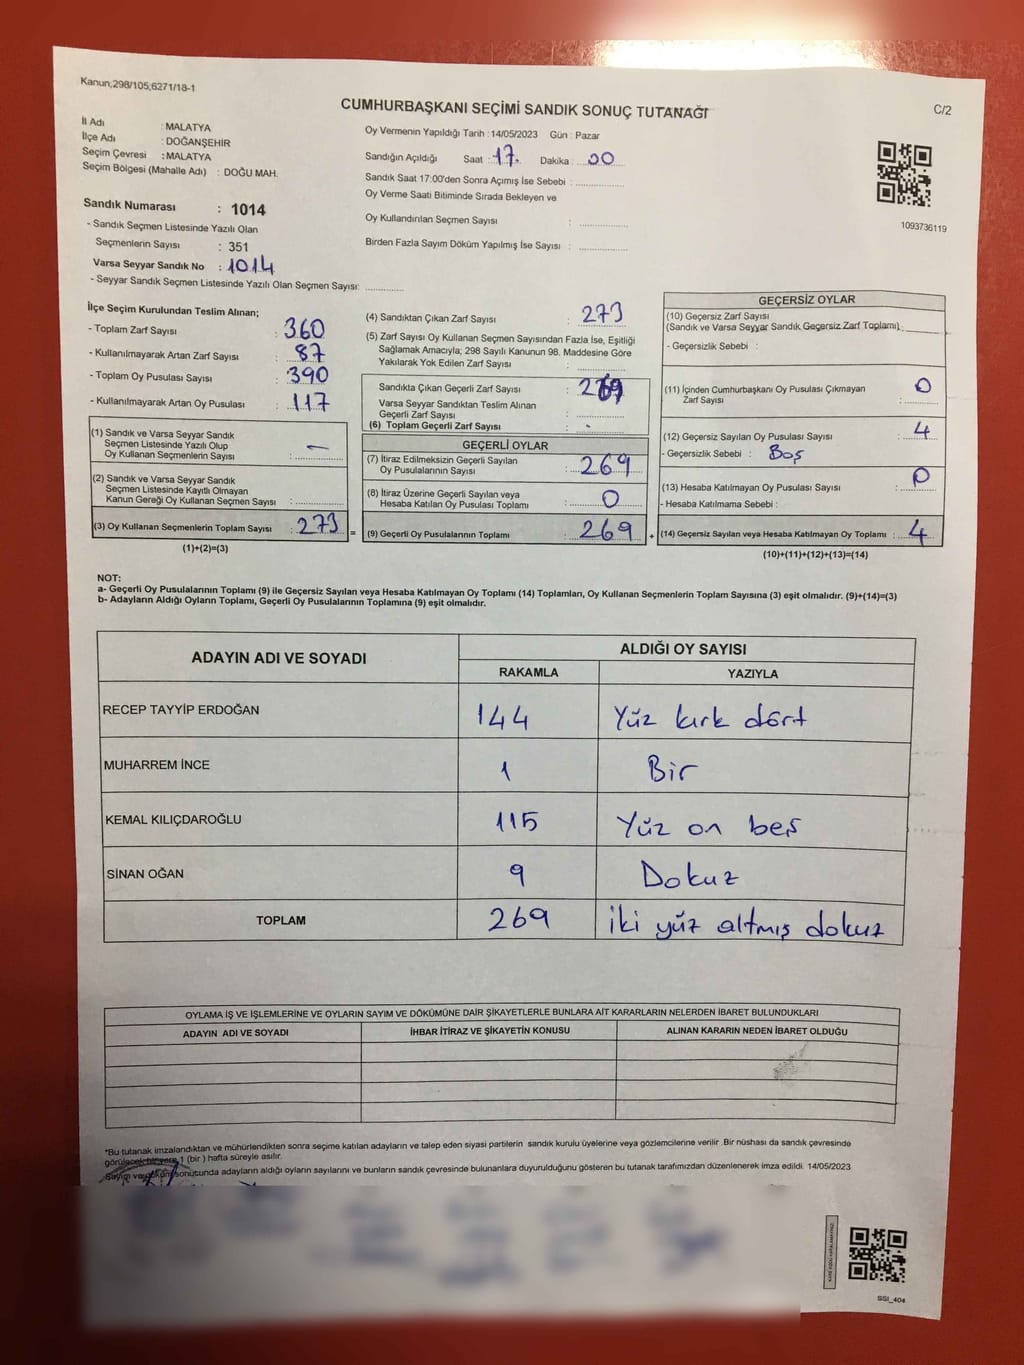 Kanun;298/105;6271/18-1
CUMHURBAŞKANI SEÇİMİ SANDIK SONUÇ TUTANAĞI
C/2
İl Adı : MALATYA
İlçe Adı : DOĞANŞEHİR
Seçim Çevresi : MALATYA
Seçim Bölgesi (Mahalle Adı) : DOĞU MAH.
Oy Vermenin Yapıldığı Tarih :14/05/2023 Gün : Pazar
Sandığın Açıldığı Saat : 17 Dakika : 00
Sandık Saat 17:00'den Sonra Açımış İse Sebebi :
Oy Verme Saati Bitiminde Sırada Bekleyen ve
Oy Kullandırılan Seçmen Sayısı :
Birden Fazla Sayım Döküm Yapılmış İse Sayısı :
1093736119
Sandık Numarası : 1014
- Sandık Seçmen Listesinde Yazılı Olan
Seçmenlerin Sayısı : 351
Varsa Seyyar Sandık No : 1014
- Seyyar Sandık Seçmen Listesinde Yazılı Olan Seçmen Sayısı:
İlçe Seçim Kurulundan Teslim Alınan;
- Toplam Zarf Sayısı : 360
- Kullanılmayarak Artan Zarf Sayısı : 87
- Toplam Oy Pusulası Sayısı : 390
- Kullanılmayarak Artan Oy Pusulası : 117
(1) Sandık ve Varsa Seyyar Sandık
Seçmen Listesinde Yazılı Olup
Oy Kullanan Seçmenlerin Sayısı : —
(2) Sandık ve Varsa Seyyar Sandık
Seçmen Listesinde Kayıtlı Olmayan
Kanun Gereği Oy Kullanan Seçmen Sayısı :
(3) Oy Kullanan Seçmenlerin Toplam Sayısı : 273 =
(1)+(2)=(3)
(4) Sandıktan Çıkan Zarf Sayısı : 273
(5) Zarf Sayısı Oy Kullanan Seçmen Sayısından Fazla İse, Eşitliği
Sağlamak Amacıyla; 298 Sayılı Kanunun 98. Maddesine Göre
Yakılarak Yok Edilen Zarf Sayısı :
Sandıkta Çıkan Geçerli Zarf Sayısı : 269
Varsa Seyyar Sandıktan Teslim Alınan
Geçerli Zarf Sayısı :
(6) Toplam Geçerli Zarf Sayısı :
GEÇERLİ OYLAR
(7) İtiraz Edilmeksizin Geçerli Sayılan
Oy Pusulalarının Sayısı : 269
(8) İtiraz Üzerine Geçerli Sayılan veya
Hesaba Katılan Oy Pusulası Toplamı : 0
(9) Geçerli Oy Pusulalarının Toplamı : 269 +
GEÇERSİZ OYLAR
(10) Geçersiz Zarf Sayısı
(Sandık ve Varsa Seyyar Sandık Geçersiz Zarf Toplamı) :
- Geçersizlik Sebebi :
(11) İçinden Cumhurbaşkanı Oy Pusulası Çıkmayan
Zarf Sayısı : 0
(12) Geçersiz Sayılan Oy Pusulası Sayısı : 4
- Geçersizlik Sebebi : Boş
(13) Hesaba Katılmayan Oy Pusulası Sayısı : 0
- Hesaba Katılmama Sebebi :
(14) Geçersiz Sayılan veya Hesaba Katılmayan Oy Toplamı : 4
(10)+(11)+(12)+(13)=(14)
NOT:
a- Geçerli Oy Pusulalarının Toplamı (9) ile Geçersiz Sayılan veya Hesaba Katılmayan Oy Toplamı (14) Toplamları, Oy Kullanan Seçmenlerin Toplam Sayısına (3) eşit olmalıdır. (9)+(14)=(3)
b- Adayların Aldığı Oyların Toplamı, Geçerli Oy Pusulalarının Toplamına (9) eşit olmalıdır.
ADAYIN ADI VE SOYADI
ALDIĞI OY SAYISI
RAKAMLA YAZIYLA
RECEP TAYYİP ERDOĞAN 144 Yüz kırk dört
MUHARREM İNCE 1 Bir
KEMAL KILIÇDAROĞLU 115 Yüz on beş
SİNAN OĞAN 9 Dokuz
TOPLAM 269 iki yüz altmış dokuz
OYLAMA İŞ VE İŞLEMLERİNE VE OYLARIN SAYIM VE DÖKÜMÜNE DAİR ŞİKAYETLERLE BUNLARA AİT KARARLARIN NELERDEN İBARET BULUNDUKLARI
ADAYIN ADI VE SOYADI İHBAR İTİRAZ VE ŞİKAYETİN KONUSU ALINAN KARARIN NEDEN İBARET OLDUĞU
*Bu tutanak imzalandıktan ve mühürlendikten sonra seçime katılan adayların ve talep eden siyasi partilerin sandık kurulu üyelerine veya gözlemcilerine verilir .Bir nüshası da sandık çevresinde
görülecek bir yere 1 (bir ) hafta süreyle asılır.
Sayım ve döküm sonutunda adayların aldığı oyların sayılarını ve bunların sandık çevresinde bulunanlara duyurulduğunu gösteren bu tutanak tarafımızdan düzenlenerek imza edildi. 14/05/2023
SSI_404